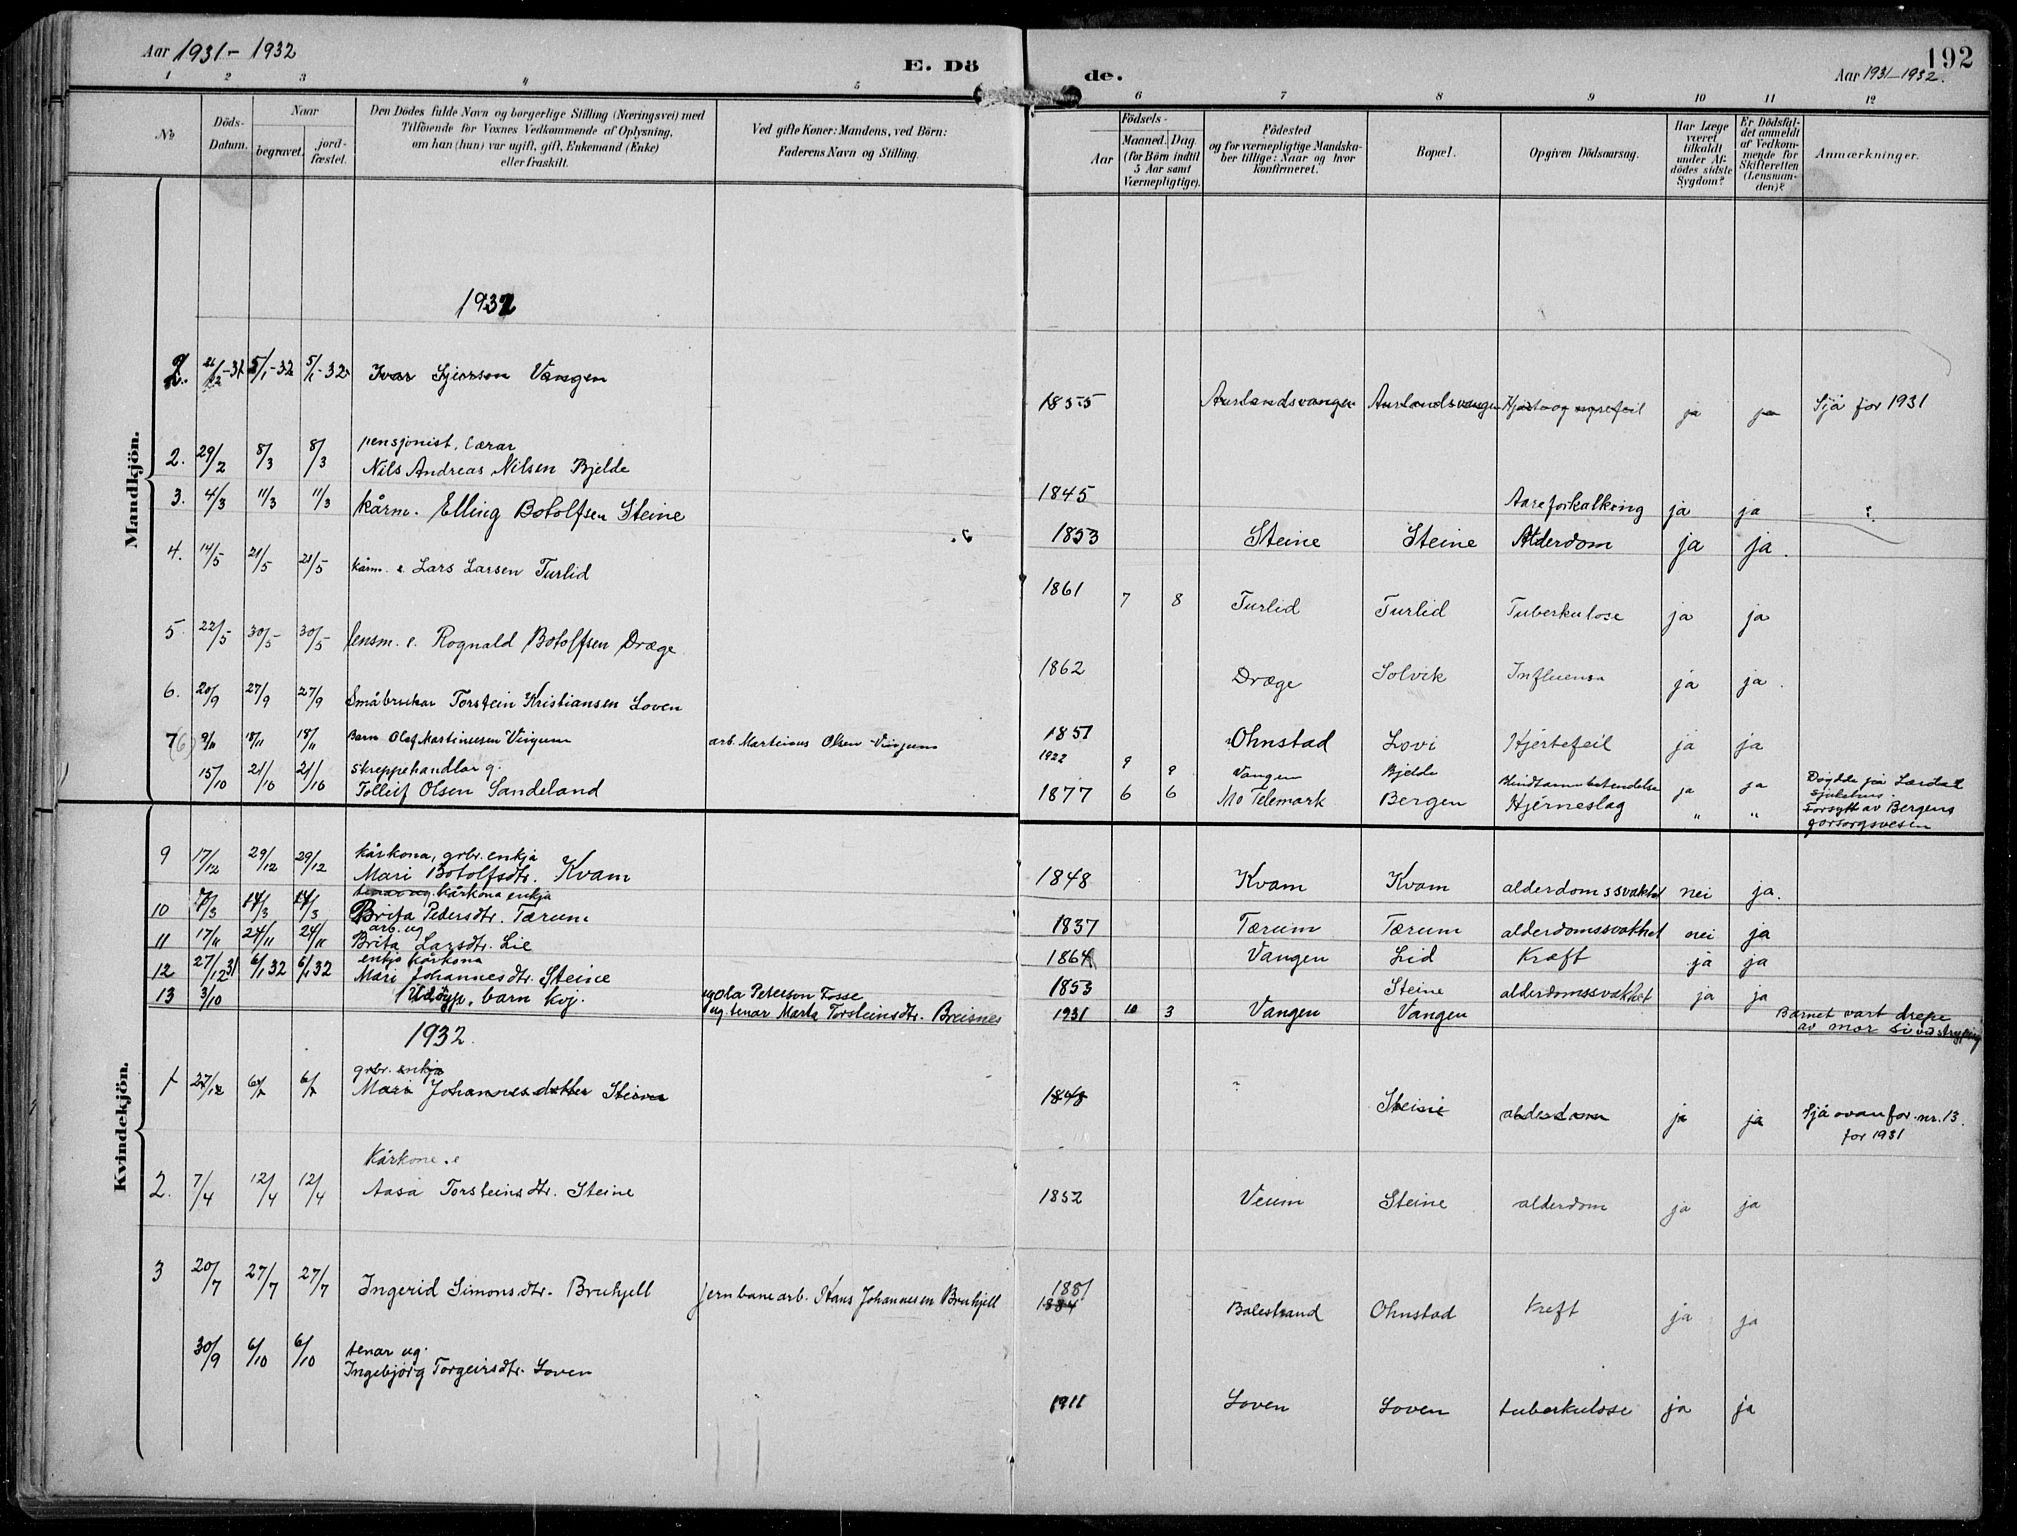 Aar 1931 - 1932
E. Dö
de.
192
Aar 1931-1932.
1 2 3 4 5 6 7 8 9 10 11 12
No
Döds-
Datum.
Naar
begravet.
jord-
fæstet.
Den Dödes fulde Navn og borgerlige Stilling (Næringsvei) med
Tilföiende for Voxnes Vedkommende af Oplysning,
om han (hun) var ugift, gift, Enkemand (Enke)
eller fraskilt.
Ved gifte Koner: Mandens, ved Börn:
Faderens Navn og Stilling.
Aar
Födsels-
Maaned. Dag
(for Börn indtil
5 Aar samt
Værnepligtige).
Födested
og for værnepligtige Mandska-
ber tillige: Naar og hvor
konfirmeret.
Bopæl.
Opgiven Dödsaarsag.
Har Læge
været
tilkaldt
under Af-
dödes sidste
Sygdom?
Er Dödsfal-
det anmeldt
af Vedkom-
mende for
Skifteretten
(Lensman-
den)?
Anmærkninger.
Mandkjön.
1932
5/1-32 5/1-32 Ivar Vangen 1855 Aurlandsvangen Aurlandsvangen Hjerte og nyrefeil ja ja Sjå for 1931
pensjonist, lærar
2. 29/2 8/3 8/3 Nils Andreas Nilsen Bjelde 1845 Aareforkalkning ja ja
3. 4/3 11/3 11/3 kårm. Elling Botolfsen Steine 1853 Steine Steine Alderdom ja ja.
4. 14/5 21/5 21/5 kårm. e. Lars Larsen Turlid 1861 7 8 Turlid Turlid Tuberkulose ja ja
5. 22/5 30/5 30/5 lensm. e. Rognald Botolfsen Dræge 1862 Dræge Solvik Influensa ja ja.
6. 20/9 27/9 27/9 Småbrukar Torstein Kristiansen Loven 1851 Ohnstad Lovi Hjertefeil ja ja
7 9/11 18/11 18/11 Barn Olaf Martinusen Vinjum arb. Martinus Olsen Vinjum 1922 9 9 Vangen Bjelde Blindtarmbetendelse ja ja Döydde på Lærdal
sjukehus.
skreppehandlar g.
15/10 21/10 21/10 Tolleif Olsen Sandeland 1877 6 6 Mo Telemark Bergen Hjerneslag " " Forsytt av Bergens
forsorgsvesen
Kvindekjön.
kårkona, grbr. enkja
9 17/12 29/12 29/12 Mari Botolfsdtr. Kvam 1848 Kvam Kvam alderdomssvakhet nei ja.
kårkona enkja
10 14/3 14/3 Brita Pedersdtr. Tærum 1837 Tærum Tærum alderdomssvakhet nei ja
arb. ug
11 17/11 24/11 24/11 Brita Larsdtr. Lie 1864 Vangen Lid Kræft ja ja
enkja kårkona
12 27/12 31 6/1 32 6/1 32 Mari Johannesdtr. Steine 1853 Steine alderdomssvakhet ja ja
13 3/10 Udöypt barn kvj. Ola Peterson Fosse
ug tenar Marta Torsteinsdtr. Breisnes 1931 10 3 Vangen Vangen Barnet vart drepe
av mor si ved
1932.
grbr. enkja
1 27/12 Mari Johannesdotter Steine 1848 Steine alderdom ja ja Sjå ovanfor nr. 13
for 1931
Kårkone. e
2. 7/4 12/4 12/4 Aasa Torsteinsdtr. Steine 1852 Veum Steine alderdom ja ja
3 20/7 27/7 27/7 Ingerid Simonsdtr. Bruhjell jernbanearb. Hans Johannesen Bruhjell 1881
1884 Balestrand Ohnstad Kreft ja ja
tenar ug.
30/9 6/10 6/10 Ingebjörg Torgeirsdtr. Loven 1911 Loven Loven tuberkulose ja ja